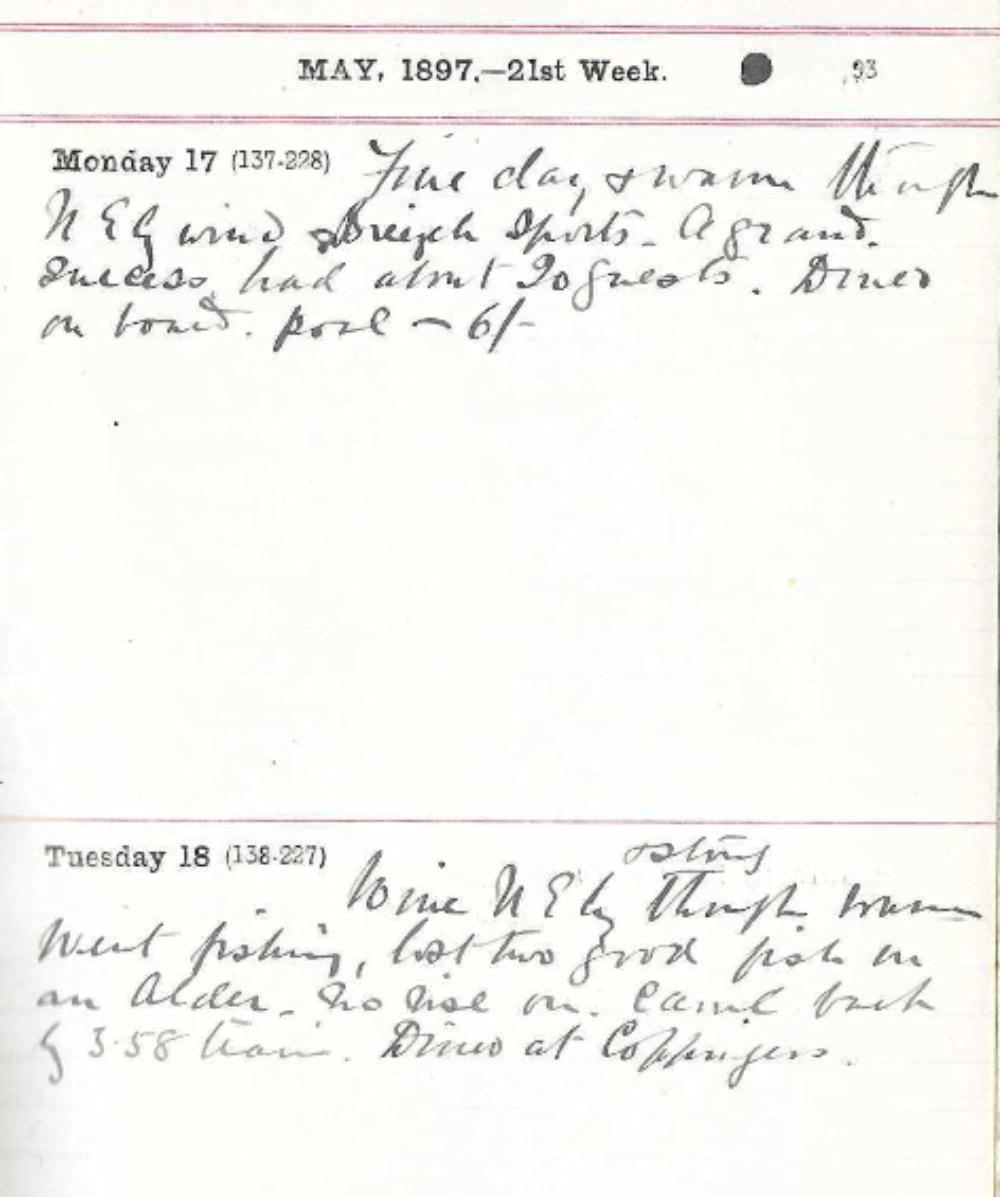 MAY, 1897.—21st Week. 93
Monday 17 (137-228) Fine day, & warm though
N Ely wind & Sports. A grand
success, had about 20 guests. Dined
on board. pool — 6/-
Tuesday 18 (138-227) & strong
Wind N Ely though warm
Went fishing, lost two good fish on
an Alder. No rise on. Came back
by 3.58 train. Dined at Coppingers.